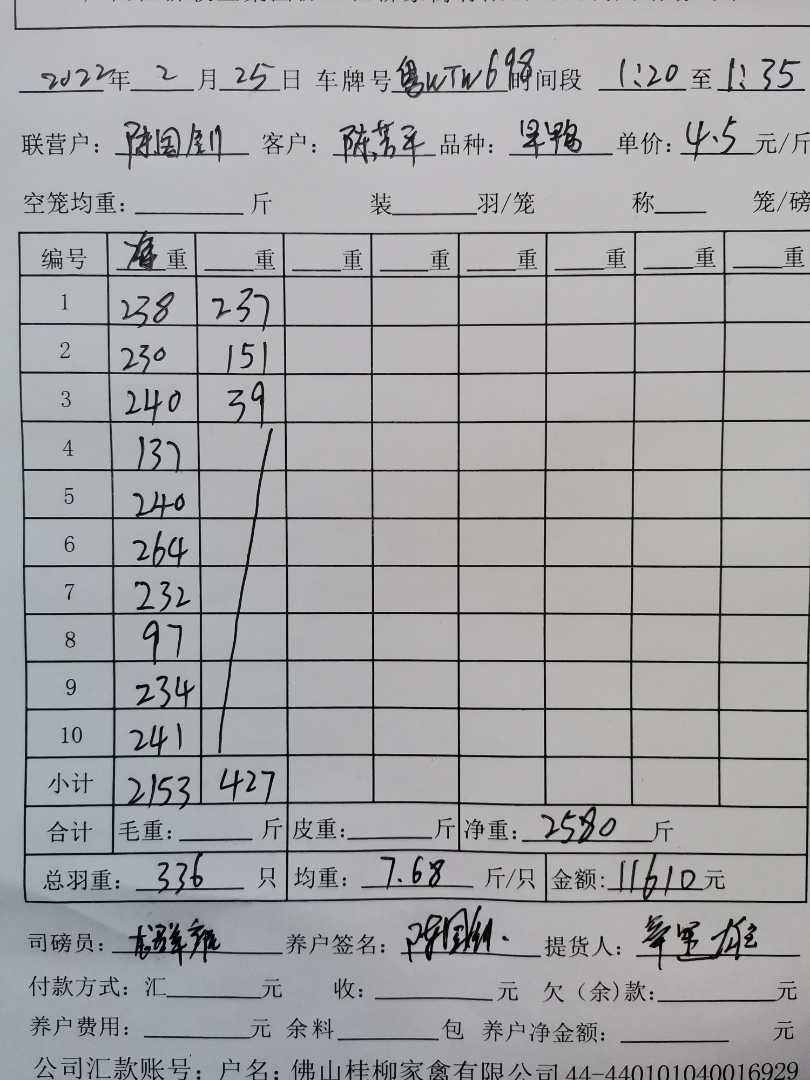 2022年 2 月 25 日 车牌号 粤WTW698 时间段 1:20 至 1:35
联营户: 陈国钊 客户: 陈芳平 品种: 单鸭 单价: 4.5 元/斤
空笼均重: 斤 装 羽/笼 称 笼/磅
编号 重 重 重 重 重 重 重 重
1 238 237
2 230 151
3 240 39
4 137
5 240
6 264
7 232
8 97
9 234
10 241
小计 2153 427
合计 毛重: 斤 皮重: 斤 净重: 2580 斤
总羽重: 336 只 均重: 7.68 斤/只 金额: 11610 元
司磅员: 养户签名: 陈国钊. 提货人:
付款方式: 汇 元 收: 元 欠(余)款: 元
养户费用: 元 余料 包 养户净金额: 元
公司汇款账号: 户名: 佛山桂柳家禽有限公司44-440101040016929